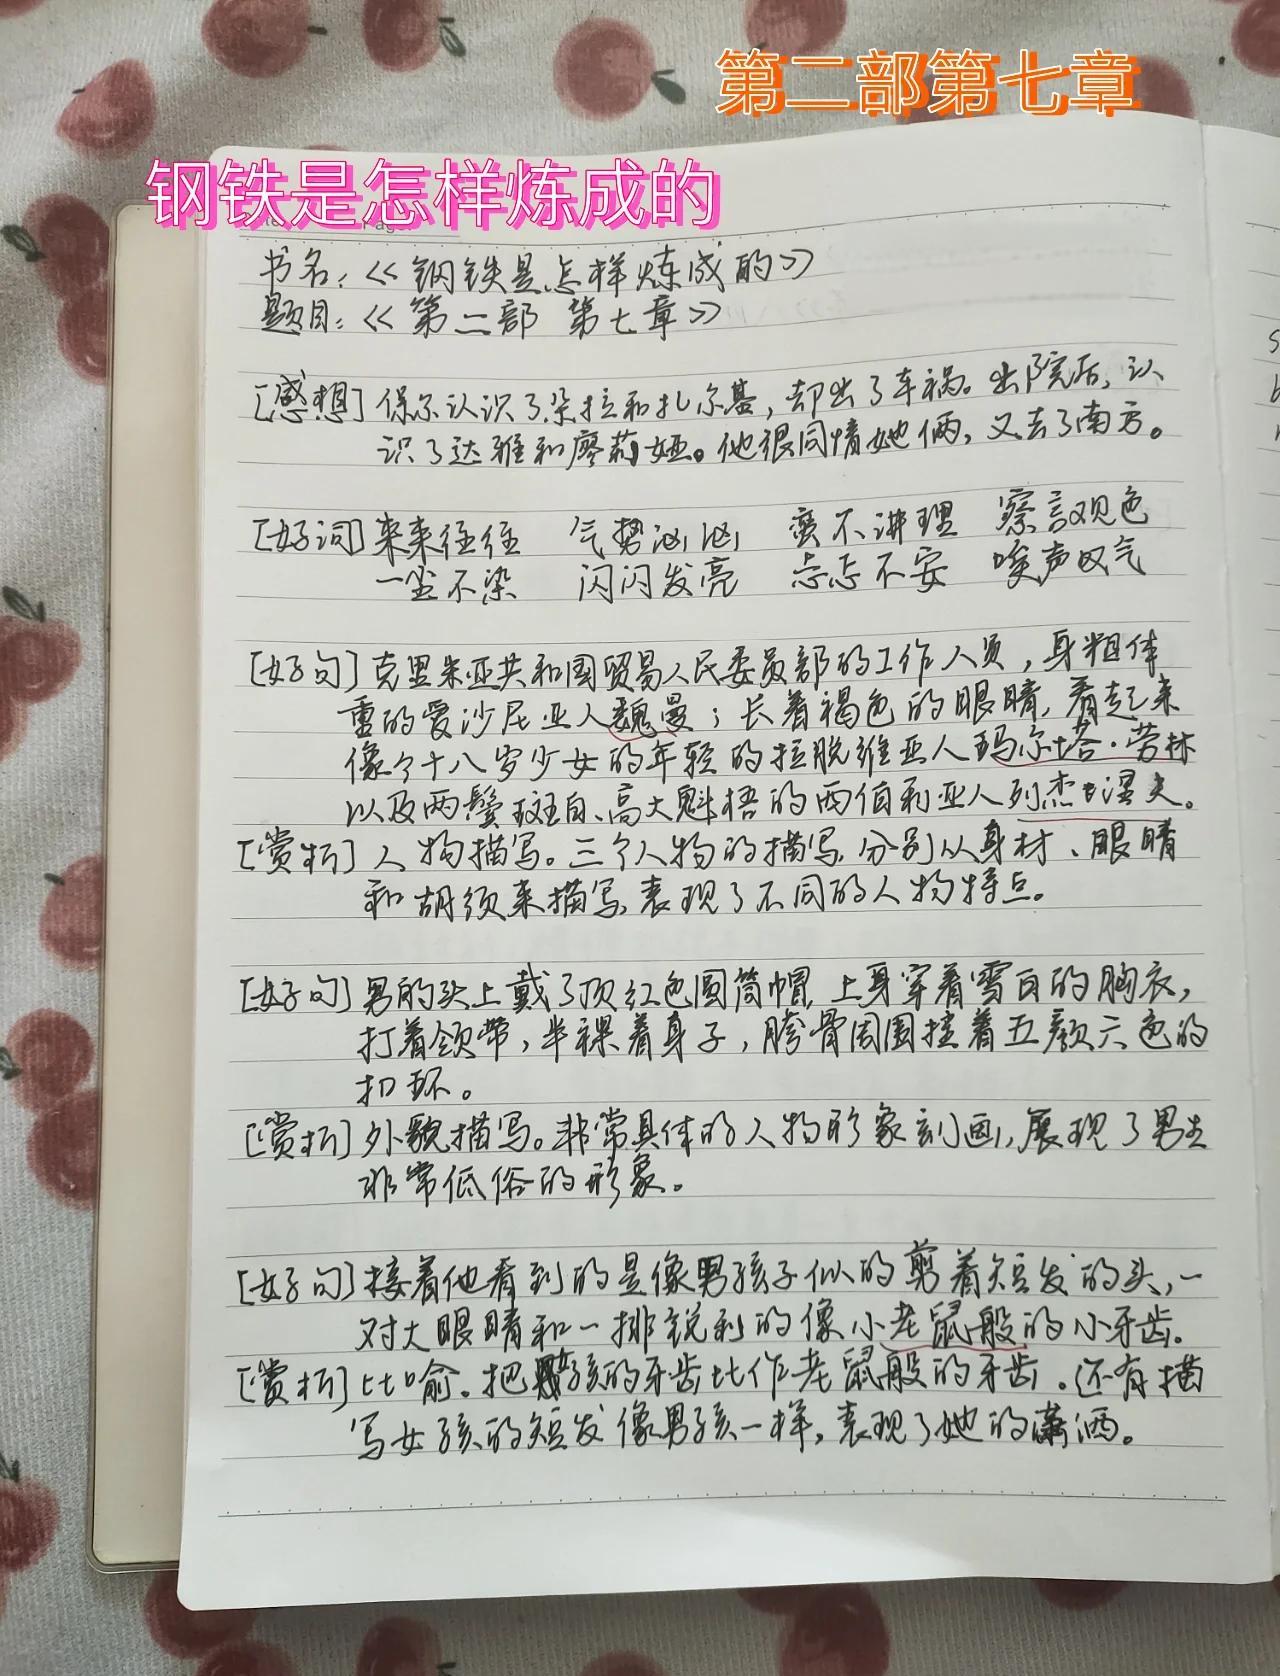 第二部第七章
钢铁是怎样炼成的
书名：《钢铁是怎样炼成的》
题目：《第二部 第七章》
[感想] 保尔认识了朵拉和扎尔基，却出了车祸。出院后，认
识了达雅和廖莉娅。他很同情她俩，又去了南方。
[好词] 来来往往 气势汹汹 蛮不讲理 察言观色
一尘不染 闪闪发亮 忐忑不安 唉声叹气
[好句] 克里米亚共和国贸易人民委员部的工作人员，身粗体
重的爱沙尼亚人魏曼；长着褐色的眼睛，看起来
像个十八岁少女的年轻的拉脱维亚人玛尔塔·劳林
以及两鬓斑白、高大魁梧的西伯利亚人列杰尼夫。
[赏析] 人物描写。三个人物的描写，分别从身材、眼睛
和胡须来描写，表现了不同的人物特点。
[好句] 男的头上戴了顶红色圆筒帽，上身穿着雪白的胸衣，
打着领带，半裸着身子，胯骨周围挂着五颜六色的
扣环。
[赏析] 外貌描写。非常具体的人物形象刻画，展现了男生
非常低俗的形象。
[好句] 接着他看到的是像男孩子似的剪着短发的头，一
对大眼睛和一排锐利的像小老鼠般的小牙齿。
[赏析] 比喻。把孩的牙齿比作老鼠般的牙齿。还有描
写女孩的短发像男孩一样，表现了她的潇洒。